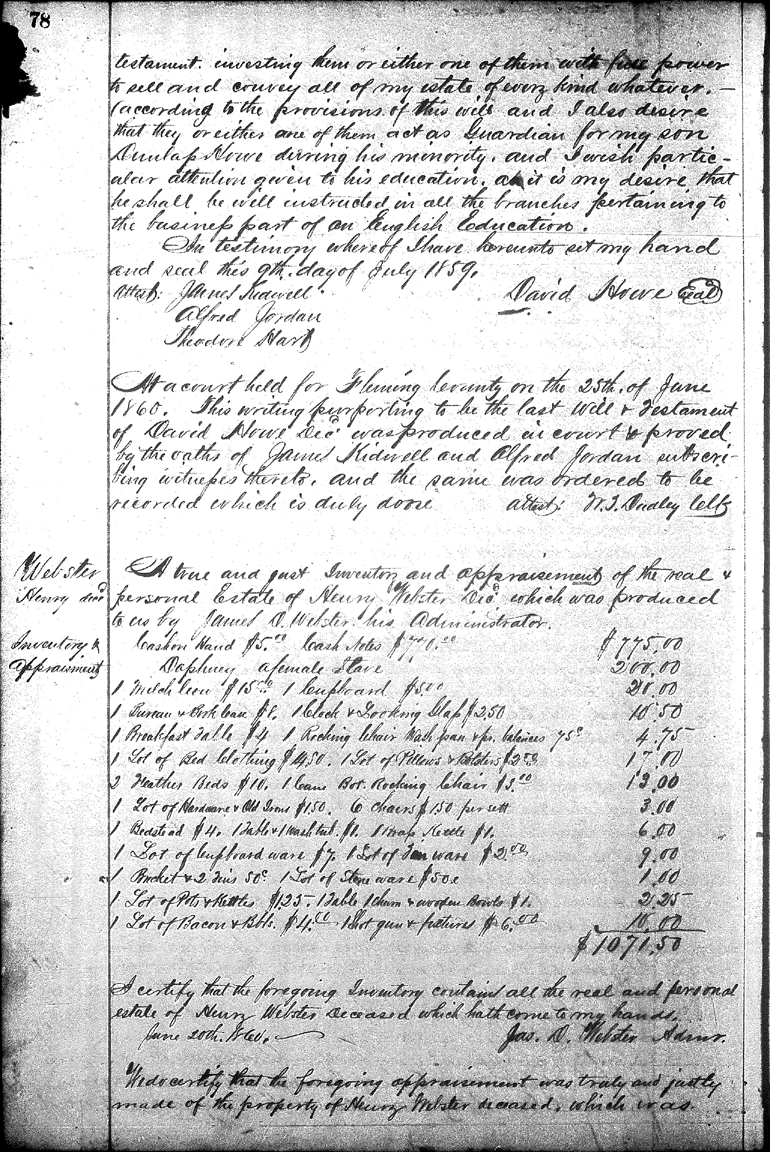 78
testament. investing them or either one of them with full power
to sell and convey all of my estate of every kind whatever. —
(according to the provisions of this will and I also desire
that they or either one of them act as Guardian for my son
Dunlap Howe durring his minority. and I wish partic-
ular attention given to his education. as it is my desire that
he shall be will instructed in all the branches pertaining to
the business part of an English Education.
In testimony whereof I have hereunto set my hand
and seal this 9th. day of July 1859.
Attest: James Kidwell David Howe Seal
Alfred Jordan
Theodore Hart
At a court held for Fleming County on the 25th. of June
1860. This writing purporting to be the last will & Testament
of David Howe Decd was produced in court & proved
by the oaths of James Kidwell and Alfred Jordan subscri-
bing witnesses thereto. and the same was ordered to be
recorded which is duly done attest; W. T. Dudley Clk
Webster
Henry decd
Inventory &
Appraisment
A true and just Inventory and appraisement of the real &
personal Estate of Henry Webster Decd which was produced
to us by James D. Webster his Administrator.
Cash on Hand $5.00 Cash Notes $770.00 $775.00
Daphney a female Slave 200.00
1 Milch Cow $15.00 1 Cupboard $5.00 20.00
1 Bureau & Book Case $8. 1 Clock & Looking Glass $2.50 10.50
1 Breakfast Table $4 1 Rocking Chair Wash pan & pr. balances 75c 4.75
1 Lot of Bed Clothing $14.50. 1 Lot of Pillows & Bolsters $2.50 17.00
2 Feather Beds $10. 1 Cane Bot. Rocking Chair $3.00 13.00
1 Lot of Hardware & Old Irons $1.50. 6 Chairs $1.50 per sett 3.00
1 Bedstead $4. 1 Table & 1 Wash tub. $1. 1 Brass Kettle $1. 6.00
1 Lot of Cupboard ware $7. 1 Lot of Tin ware $2.00 9.00
1 Bucket & 2 Tins 50c 1 Lot of Stone ware $50c 1.00
1 Lot of Pots & Kettles $1.25. 1 Table 1 Churn & wooden Bowls $1. 2.25
1 Lot of Bacon & Bbls. $4.00 1 Shot gun & fixtures $6.00 10.00
$1071.50
I certify that the foregoing Inventory contains all the real and personal
estate of Henry Webster Deceased which hath come to my hands.
June 20th. 1860. Jas. D. Webster Admr.
We do certify that the foregoing appraisement was truly and justly
made of the property of Henry Webster deceased, which was